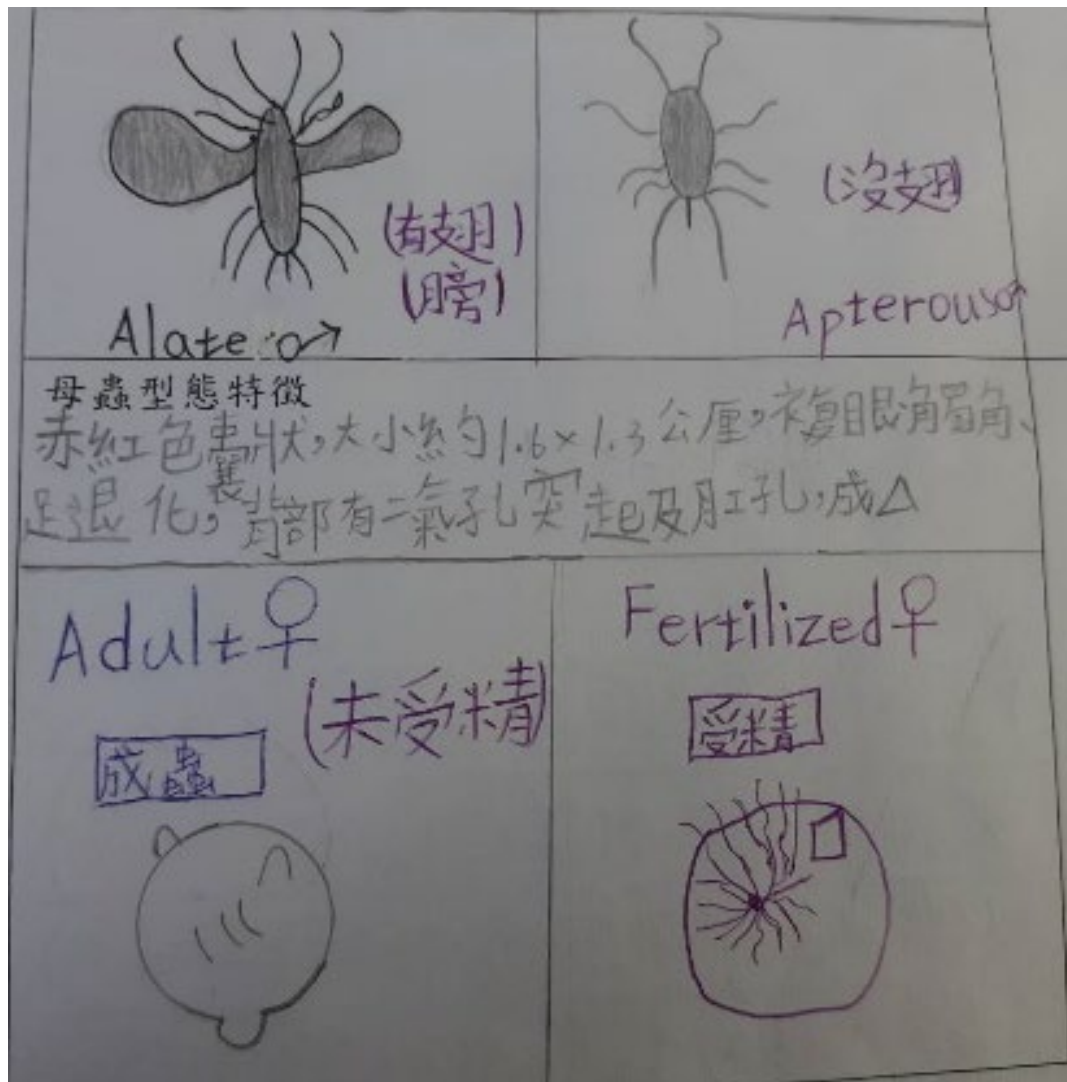 (有翅)
(膀)
Alate ♂
(沒翅)
Apterous♂
母蟲型態特徵
赤紅色囊狀,大小約1.6×1.3公厘,複眼觸角、
足退化,背部有二氣孔突起及肛孔,成△
Adult♀
(未受精)
成蟲
Fertilized♀
受精